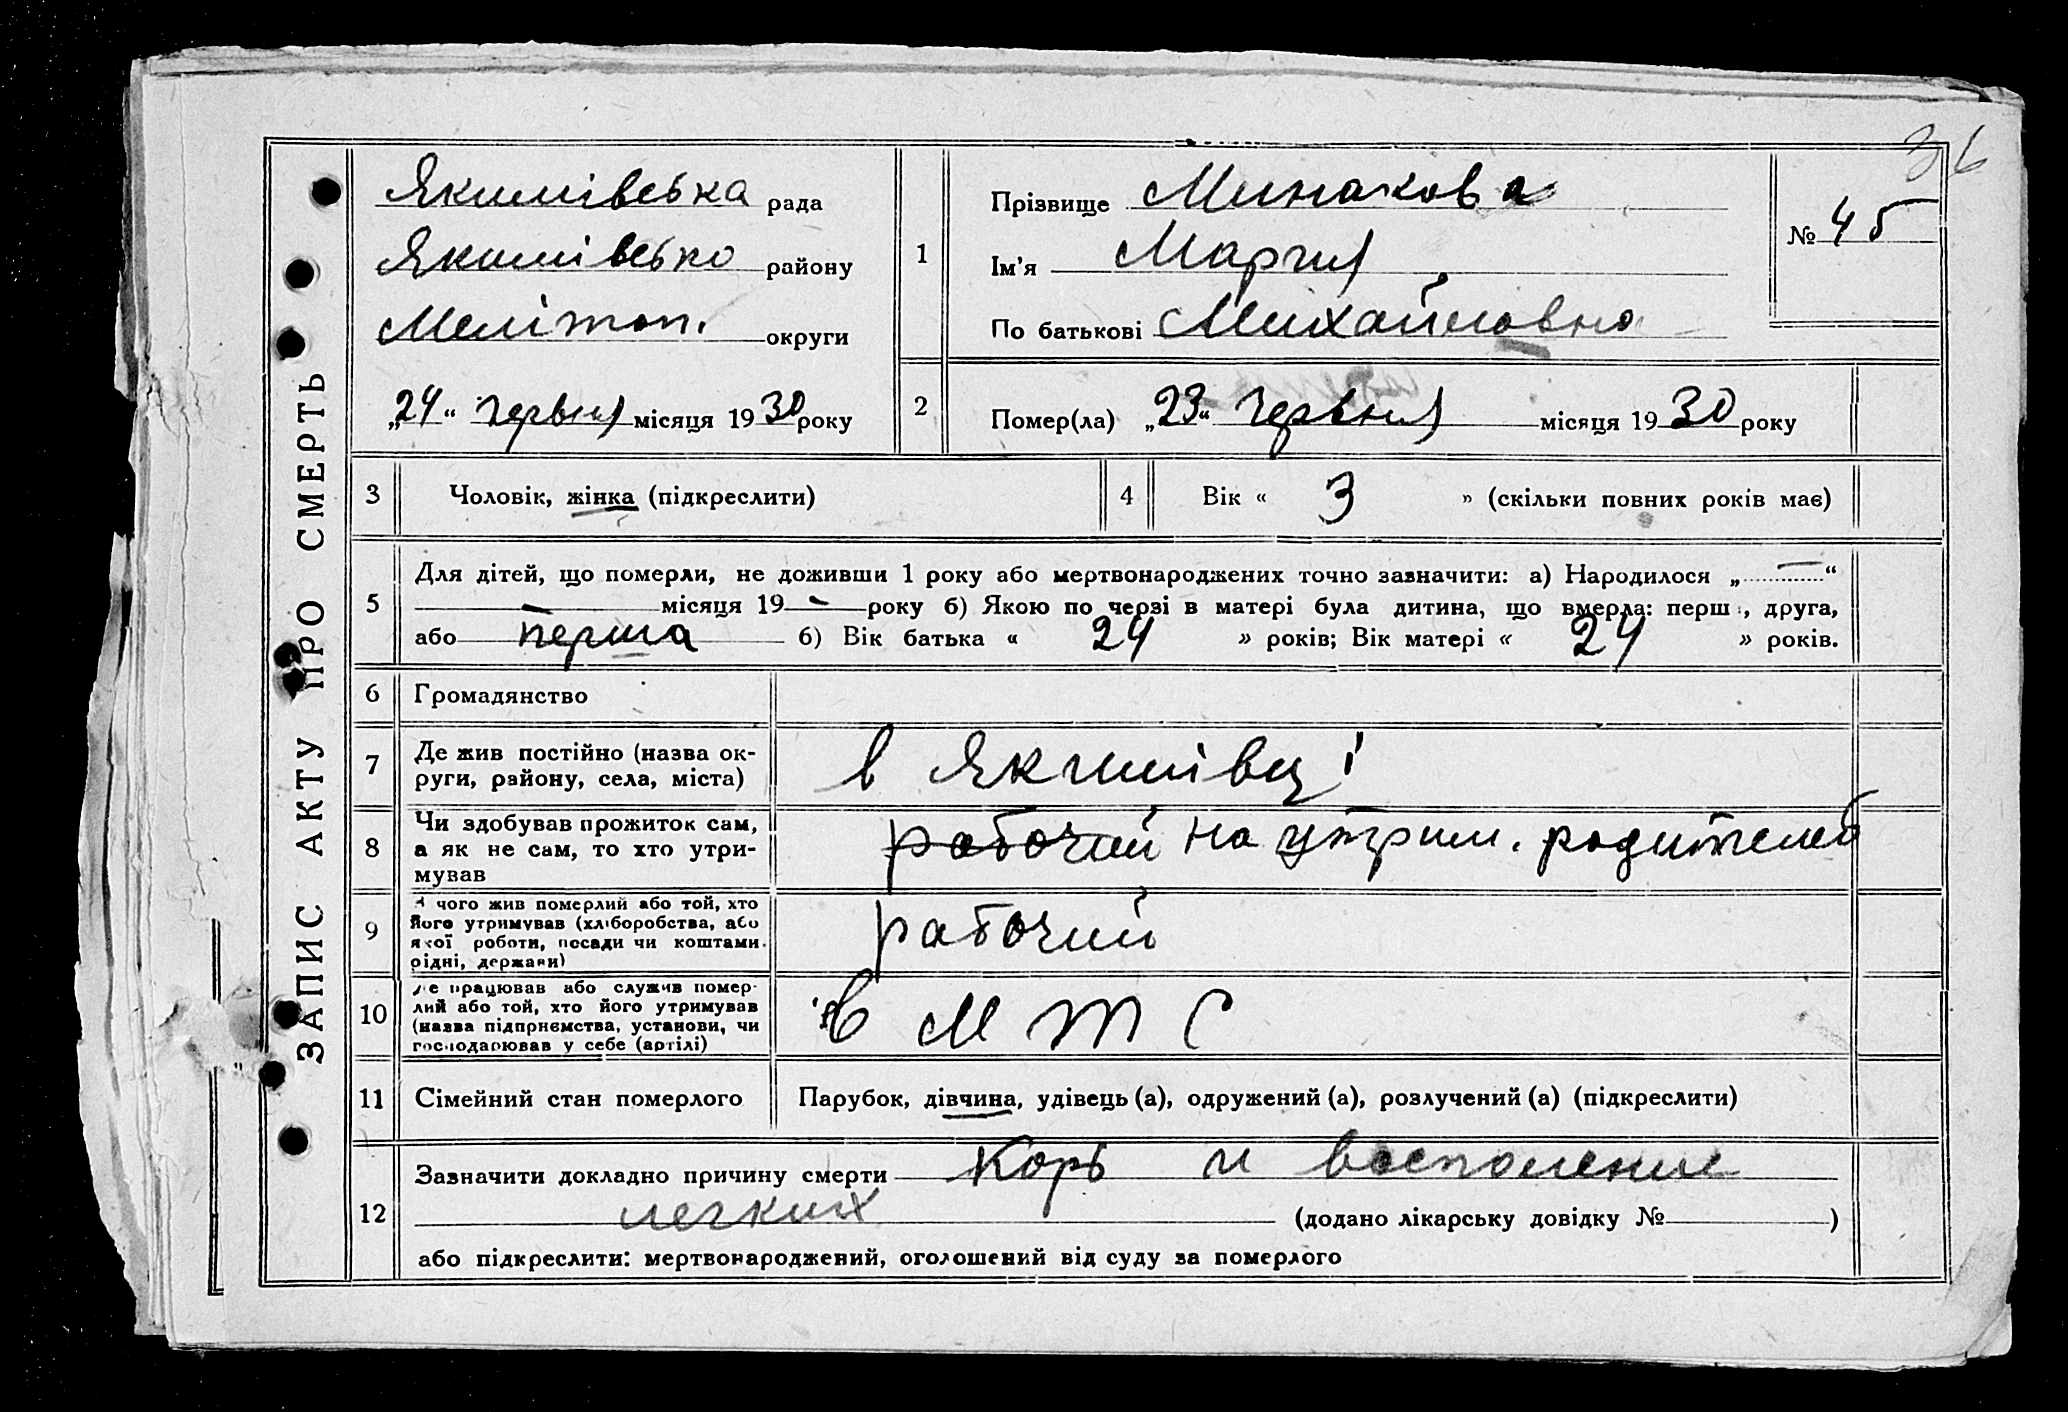 36
ЗАПИС АКТУ ПРО СМЕРТЬ
Якимівська рада
Якимівсько району
Мелітоп. округи
„24“ червня місяця 1930 року
1
Прізвище Минакова
Ім'я Мария
По батькові Михайловна
№ 45
2
Помер(ла) „23“ червня місяця 1930 року
3 Чоловік, жінка (підкреслити)
4 Вік « 3 » (скільки повних років має)
5
Для дітей, що померли, не доживши 1 року або мертвонароджених точно зазначити: а) Народилося „—“
— місяця 19 — року б) Якою по черзі в матері була дитина, що вмерла: перш, друга,
або перша б) Вік батька « 24 » років; Вік матері « 24 » років.
6 Громадянство
7
Де жив постійно (назва ок-
руги, району, села, міста)
в Якимівці
8
Чи здобував прожиток сам,
а як не сам, то хто утри-
мував
рабочий на утрим. родителей
9
З чого жив померлий або той, хто
його утримував (хліборобства, або
якої роботи, посади чи коштами
рідні, держави)
рабочий
10
Де працював або служив помер-
лий або той, хто його утримував
(назва підприємства, установи, чи
господарював у себе (артілі)
в М Т С
11 Сімейний стан померлого
Парубок, дівчина, удівець (а), одружений (а), розлучений (а) (підкреслити)
12
Зазначити докладно причину смерти Корь и восполение
легких (додано лікарську довідку № )
або підкреслити: мертвонароджений, оголошений від суду за померлого